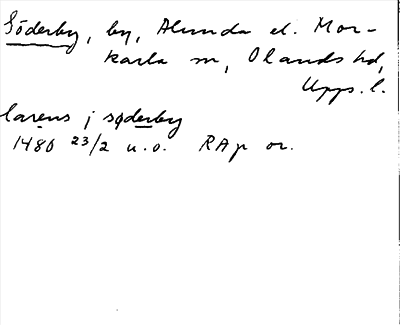 Söderby, by, Alunda el. Mor-
karla sn, Olands hd,
Upps. l.
larens j søderby
1480 23/2 u.o. RAp or.